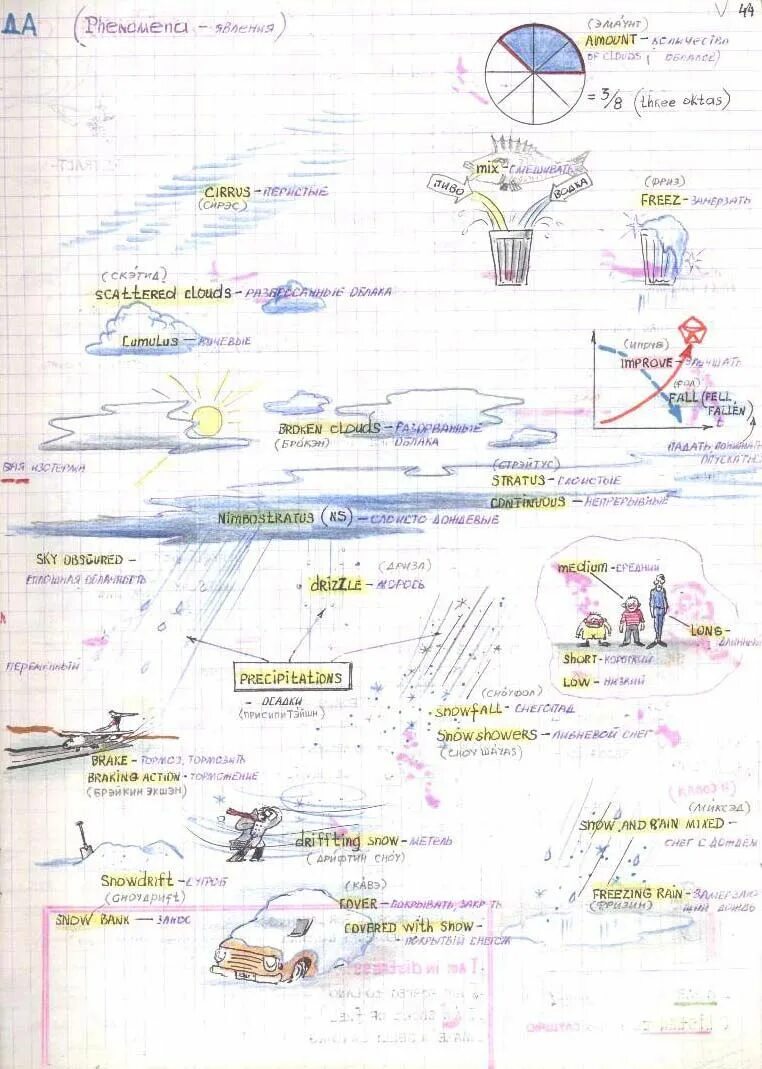 ДА (Phenomena – явления)
44
(ЭМА́УНТ)
AMOUNT – количество
OF CLOUDS (облаков)
= 3/8 (three oktas)
mix – смешивать
пиво
водка
(ФРИЗ)
FREEZ – замерзать
CIRRUS – перистые
(СИРЭС)
(СКЭТИД)
SCATTERED clouds – разбросанные облака
Cumulus – кучевые
(ИМПРУВ)
IMPROVE – улучшать
(ФОЛ)
FALL (FELL,
FALLEN)
t
BROKEN clouds – разорванные
(БРОКЭН) облака
(СТРЭЙТУС)
STRATUS – слоистые
CONTINUOUS – непрерывные
NIMBOSTRATUS (NS) – слоисто дождевые
SKY OBSCURED –
сплошная облачность
(ДРИЗЛ)
dRIZZLE – морось
medium – средний
LONG –
длинный
SHORT – короткий
LOW – низкий
переменный
PRECIPITATIONS
– осадки
(ПРИСИПИТЭЙШН)
(СНОУФОЛ)
snowfALL – снегопад
Snowshowers – ливневой снег
(СНОУ ШАУАS)
BRAKE – тормоз, тормозить
BRAKING ACTION – торможение
(БРЭЙКИН ЭКШЭН)
driffting snow – метель
(ДРИФТИН СНОУ)
(МИКСЭД)
SNOW AND RAIN MIXED –
снег с дождём
Snowdrift – сугроб
(СНОУДРИФТ)
SNOW BANK – занос
(КАВЭ)
COVER – покрывать, закрыть
COVERED with snow –
покрытый снегом
FREEZING RAIN – замерзаю-
(ФРИЗИН) щий дождь